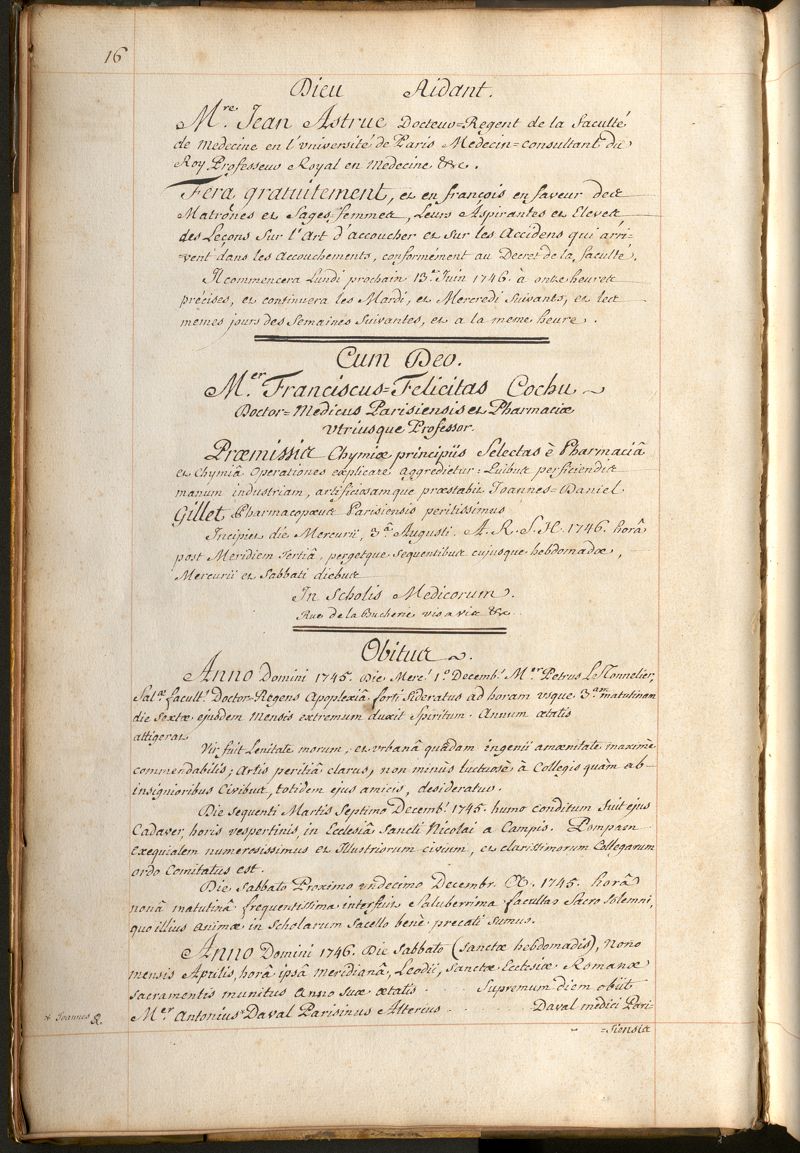 16
Dieu Aidant.
M.re Jean Astruc Docteur=Regent de la faculté
de medecine en l'université de Paris Medecin=consultant du
Roy Professeur Royal en Medecine &c.
Fera gratuitement, et en françois en faveur des
Matrônes et Sages-femmes, Leurs Aspirantes et Eleves
des Leçons sur l'Art d'accoucher et sur les Accidens qui arri-
-vent dans les Accouchements, conformément au Decret de la faculté.
Il commencera Lundi prochain 13.e Juin 1746. à onze heures
précises, et continuera les Mardi, et Mercredi suivants, et les
mêmes jours des Semaines Suivantes, et a la meme heure.
Cum Deo.
M.er Franciscus=Felicitas Cochu
Doctor=Medicus Parisiensis et Pharmaciæ
utriusque Professor.
Præmissis Chymiæ principiis Selectas è Pharmaciâ
et Chymiâ Operationes explicare aggredietur: Quibus perficiendis
manum industriam, artificiosamque præstabit Joannes=Daniel
Gillet Pharmacopœus Parisiensis peritissimus
Incipiet die Mercurii, 3.â Augusti. A. R. S. H. 1746. horâ
post Meridiem Tertiâ, pergetque sequentibus cujusque hebdomadæ,
Mercurii et Sabbati diebus
In Scholis Medicorum.
Rue de la Bucherie vis a vis &c.
Obitus.
Anno Domini 1745. Die Merc.i 1.o Decemb.i M.er Petrus Le Monnelier,
Sal.æ facult.i Doctor-Regens Apoplexiâ forti Sideratus ad horam usque 3.am matutinam
die Sextæ ejusdem Mensis extremum duxit Spiritum. Annum ætatis
attigerat
Vir fuit Lenitate morum, et urbanâ quâdam ingenii amænitate maximè
commendabilis; Artis peritiâ clarus, non minùs luctuosè à Collegis quàm ab
insignioribus Civibus, totidem ejus amicis, desideratus.
Die sequenti Martis Septimo Decemb.i 1745. humo conditum fuit ejus
Cadaver, horis vespertinis, in Ecclesiâ Sancti Nicolai a Campis. Pompam
exequialem numerosissimus et Illustriorum civium, et clarissimorum Collegarum
ordo Comitatus est.
Die Sabbato Proximo undecimo Decembr. 1745. horâ
nonâ matutinâ frequentissima interfuit Saluberrima facultas Sacro Solemni,
quo illius animæ in Scholarum Sacello benè precati sumus.
Anno Domini 1746. Die Sabbato (Sanctæ hebdomadis), Nono
mensis Aprilis, horâ ipsâ meridianâ, Leodii, sanctæ Ecclesiæ Romanæ
sacramentis munitus Anno suæ ætatis . . Supremum diem obiit
M.er Antonius* Daval Parisinus Alterus . . . Daval medici Pari-
* Joannes R.
=siensis